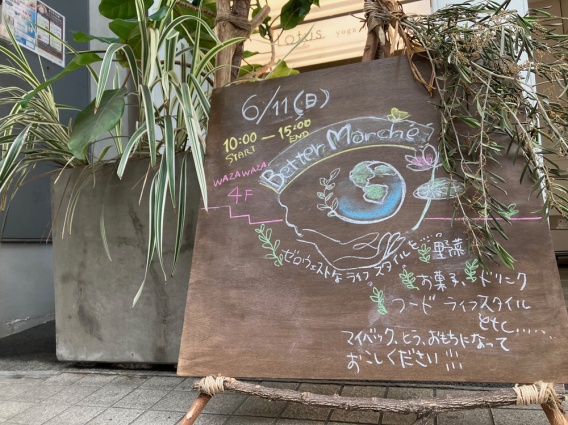 Lotus
yoga
6/11(日)
10:00 — 15:00
START END
Better Marche
WAZAWAZA
4F
ゼロウェストなライフスタイルを……
野菜
お菓子、ドリンク
フードライフスタイル
etc……
マイバック、とう、おもちになって
おこしください!!!